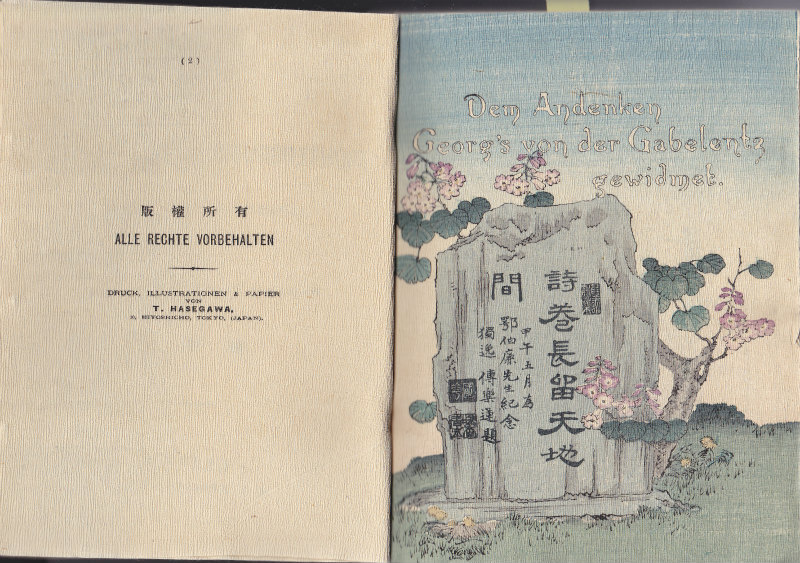 ( 2 )
版權所有
ALLE RECHTE VORBEHALTEN
DRUCK, ILLUSTRATIONEN & PAPIER
VON
T. HASEGAWA,
10, HIYOSHICHO, TOKYO, (JAPAN).
Dem Andenken
Georg's von der Gabelentz
gewidmet.
詩卷長留天地
間
甲午五月為
鄂伯廉先生紀念
獨逸 傅樂蓮題